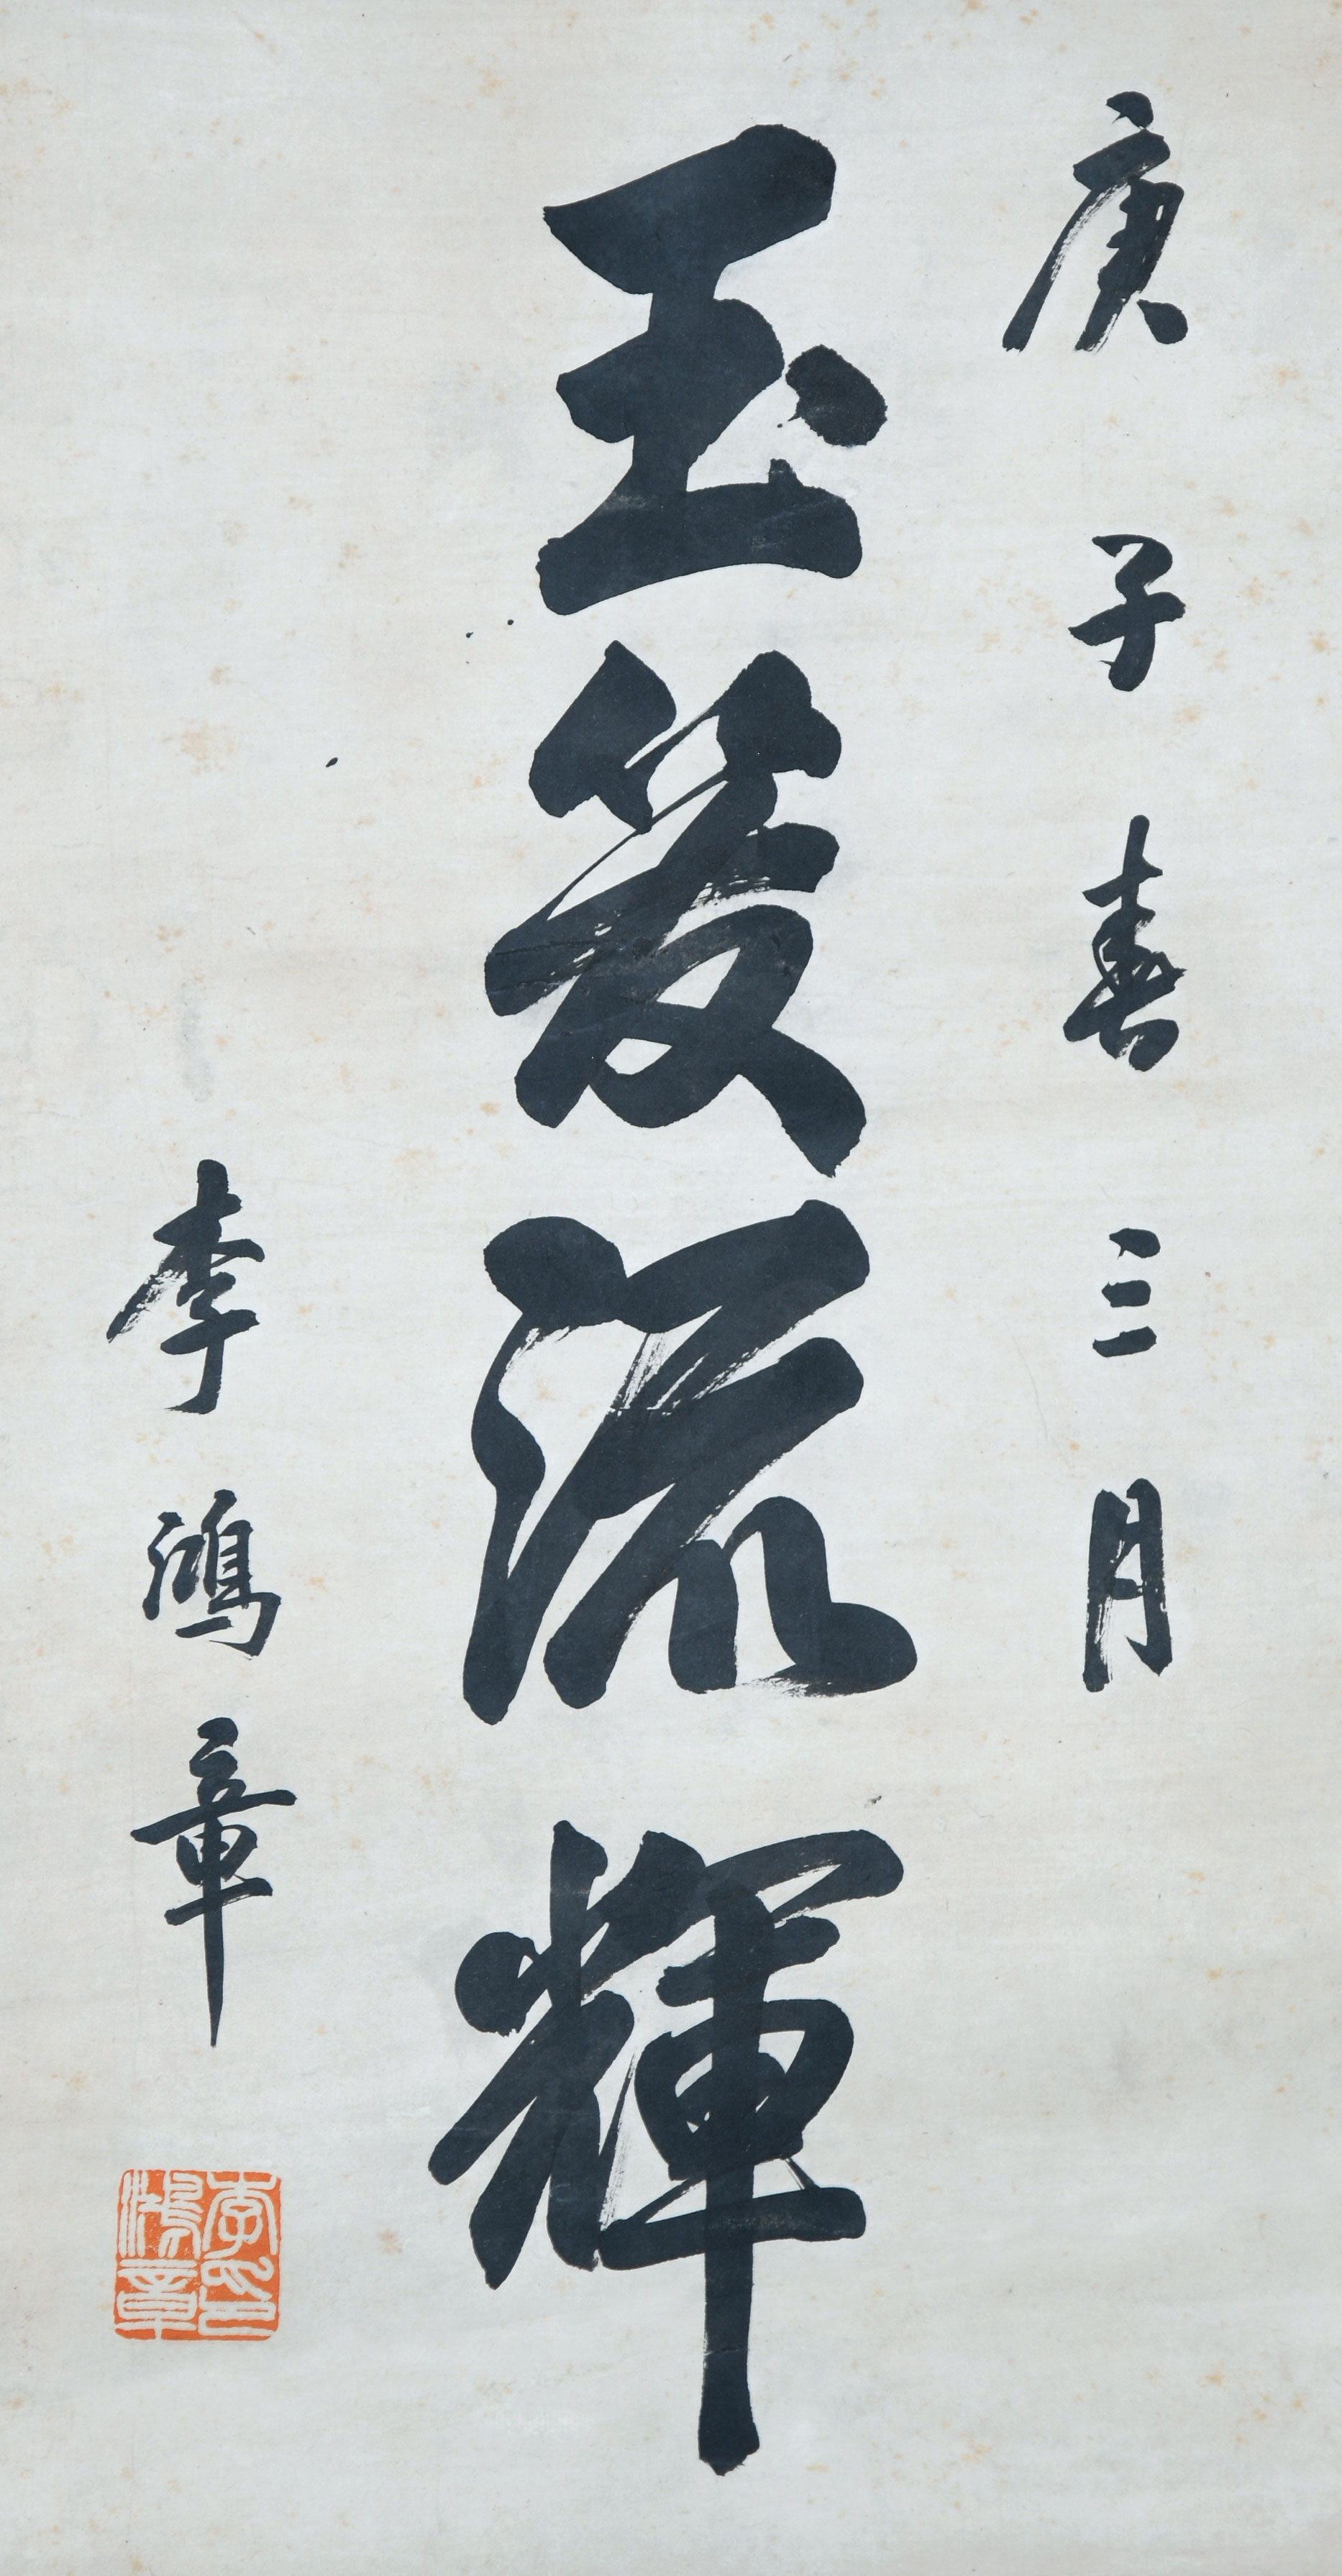 庚子春三月
玉笈流輝
李鴻章
李鴻章印